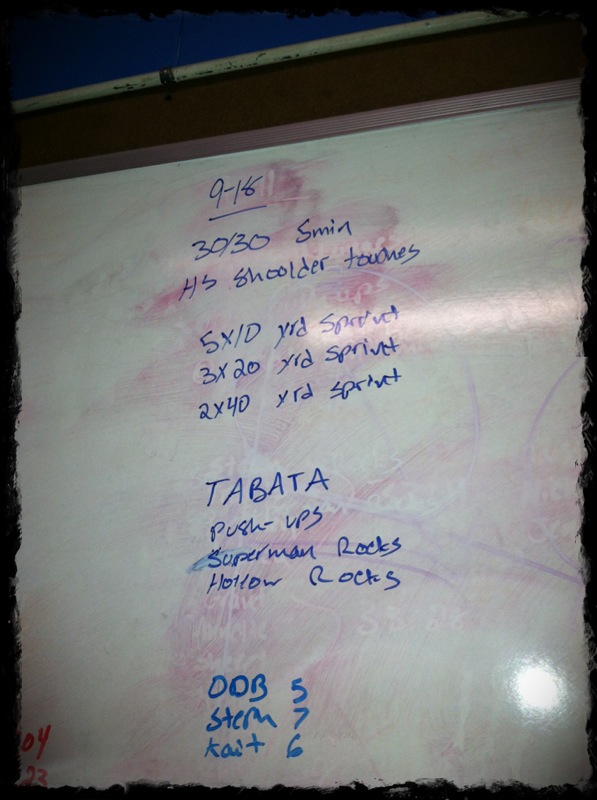 9-18
30/30 5min
HS Shoulder touches
5x10 yrd Sprint
3x20 yrd sprint
2x40 yrd sprint
TABATA
Push-ups
Superman Rocks
Hollow Rocks
ODB 5
Steph 7
Kait 6
04
23